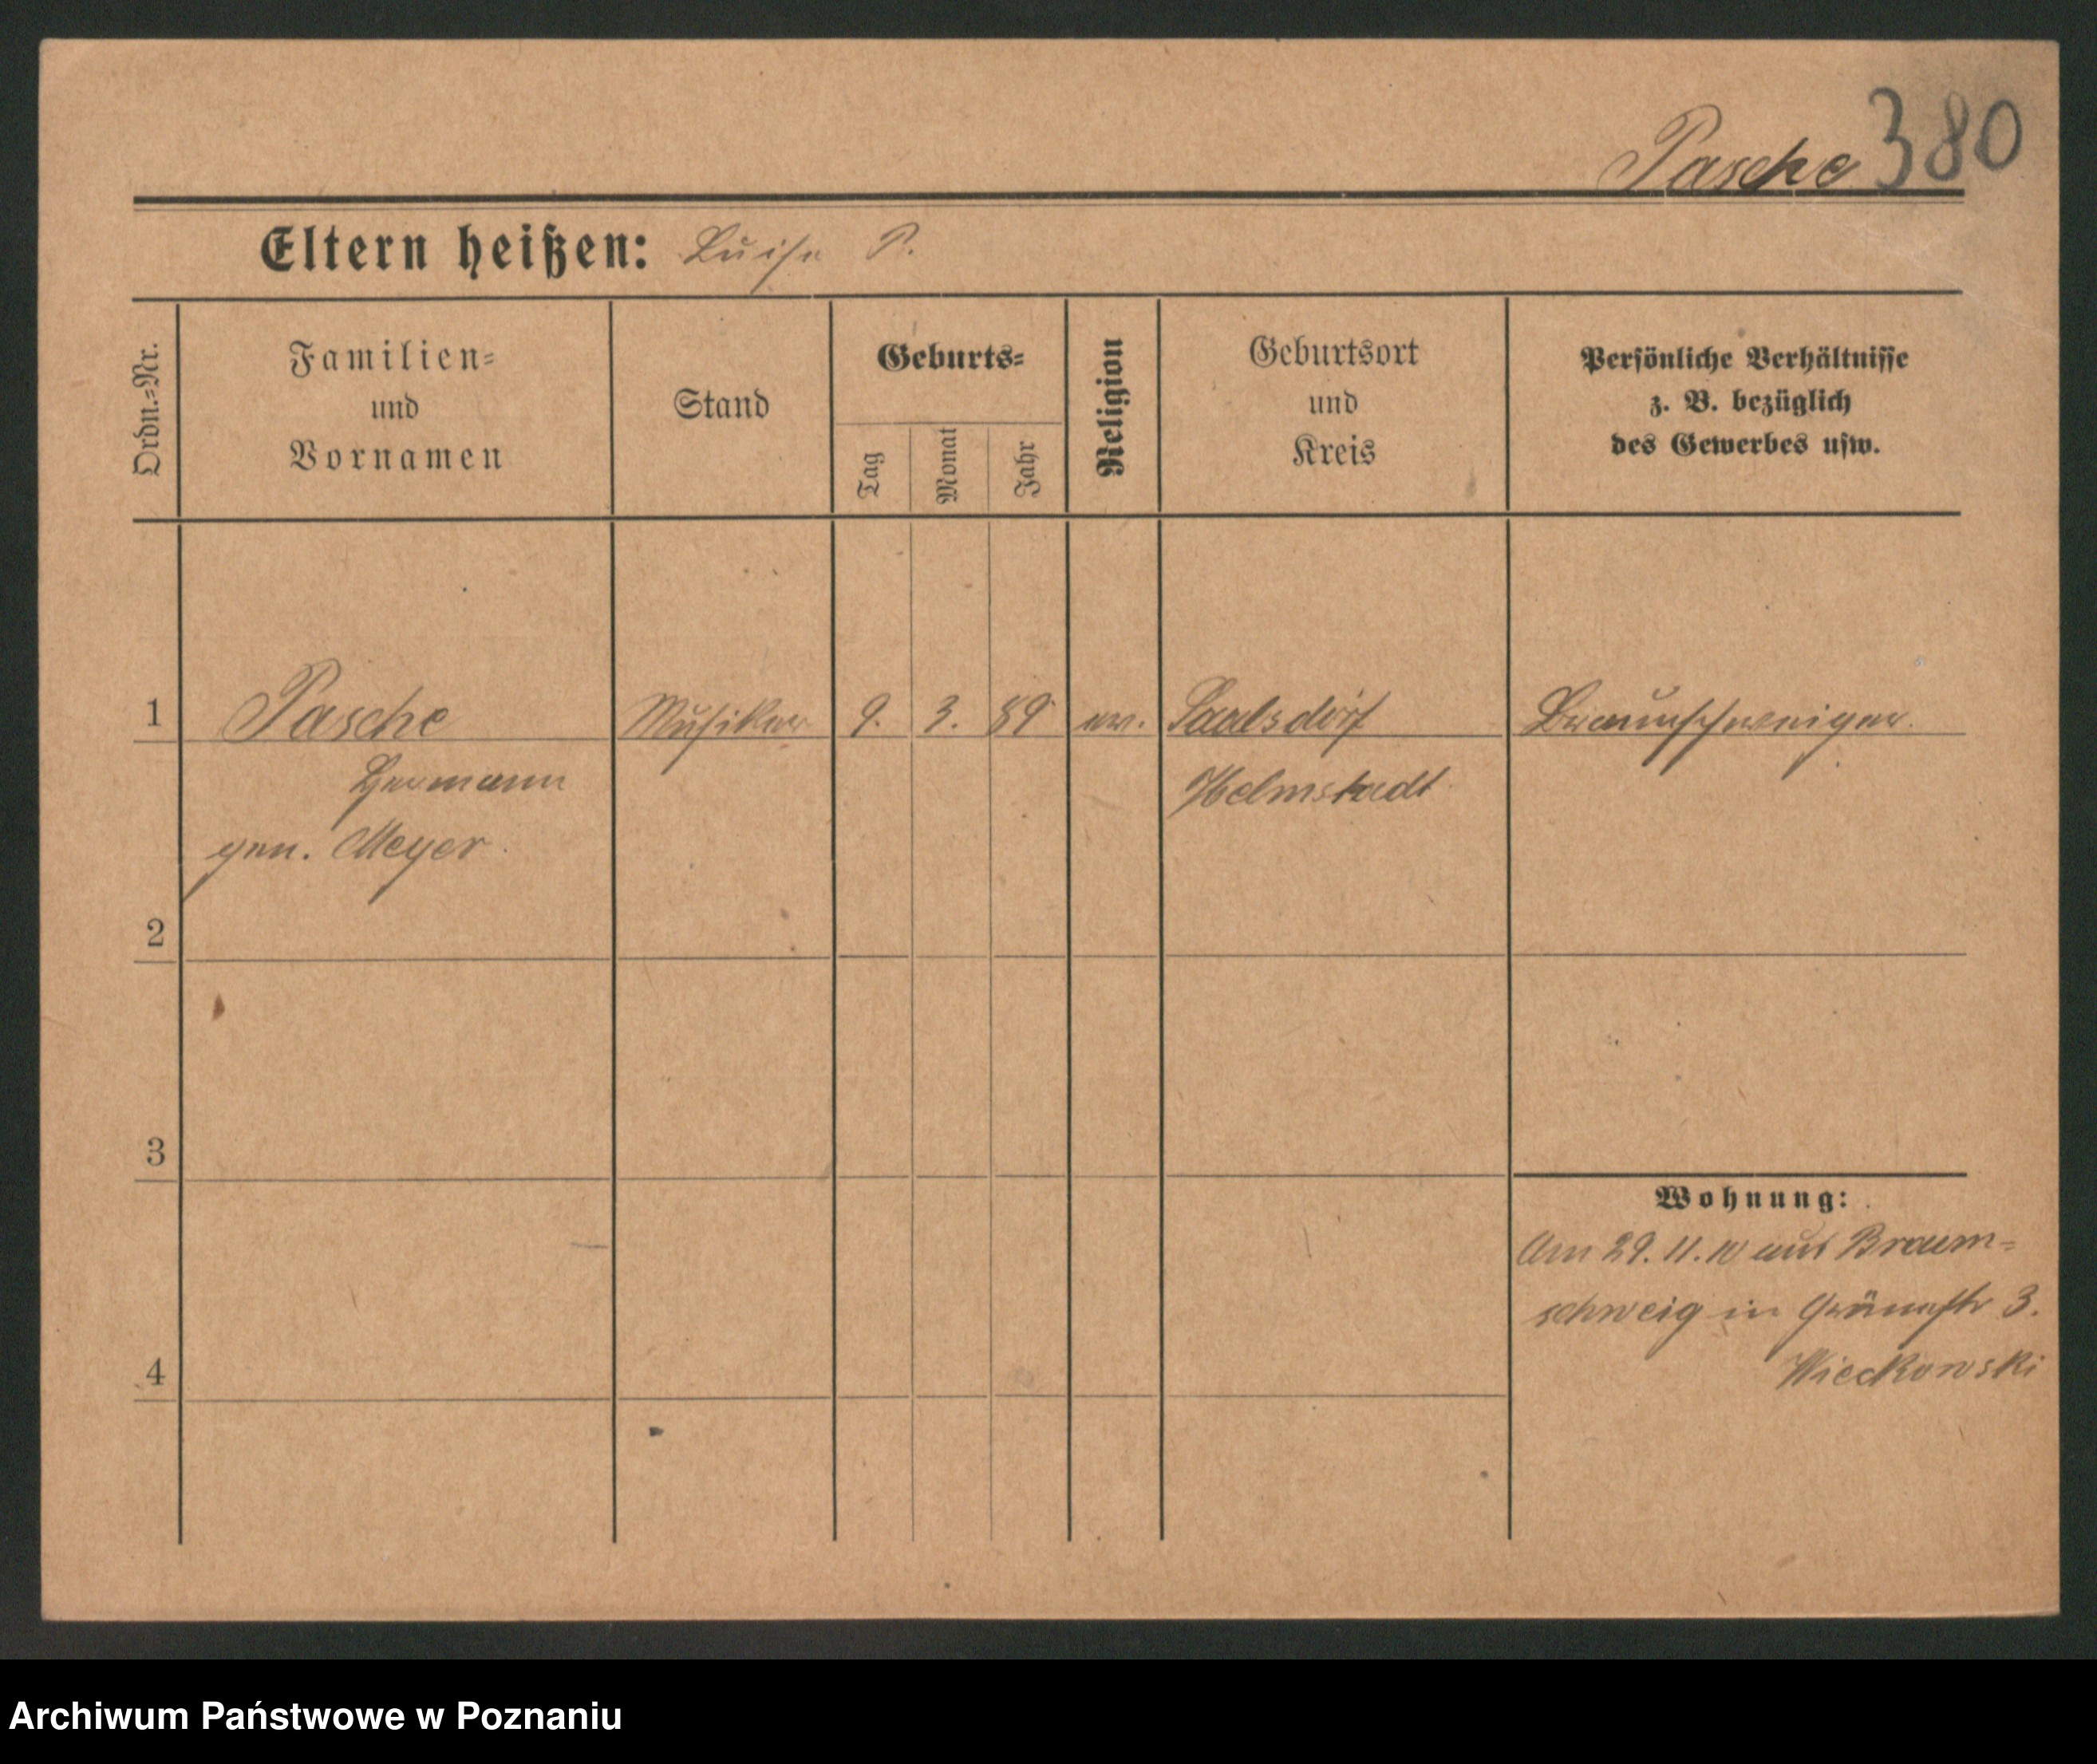 Pasche 380
Eltern heißen: Luise P.
Ordn.-Nr.
Familien-
und
Vornamen
Stand
Geburts-
Tag
Monat
Jahr
Religion
Geburtsort
und
Kreis
Persönliche Verhältnisse
z. B. bezüglich
des Gewerbes usw.
1 Pasche Musiker 9. 3. 89 ev. Saalsdorf Braunschweiger.
Hermann Helmstadt
gen. Meyer
2
3
Wohnung:
Am 29. 11. 10 aus Braun-
schweig in Grünestr 3.
Wieckowski
4
Archiwum Państwowe w Poznaniu